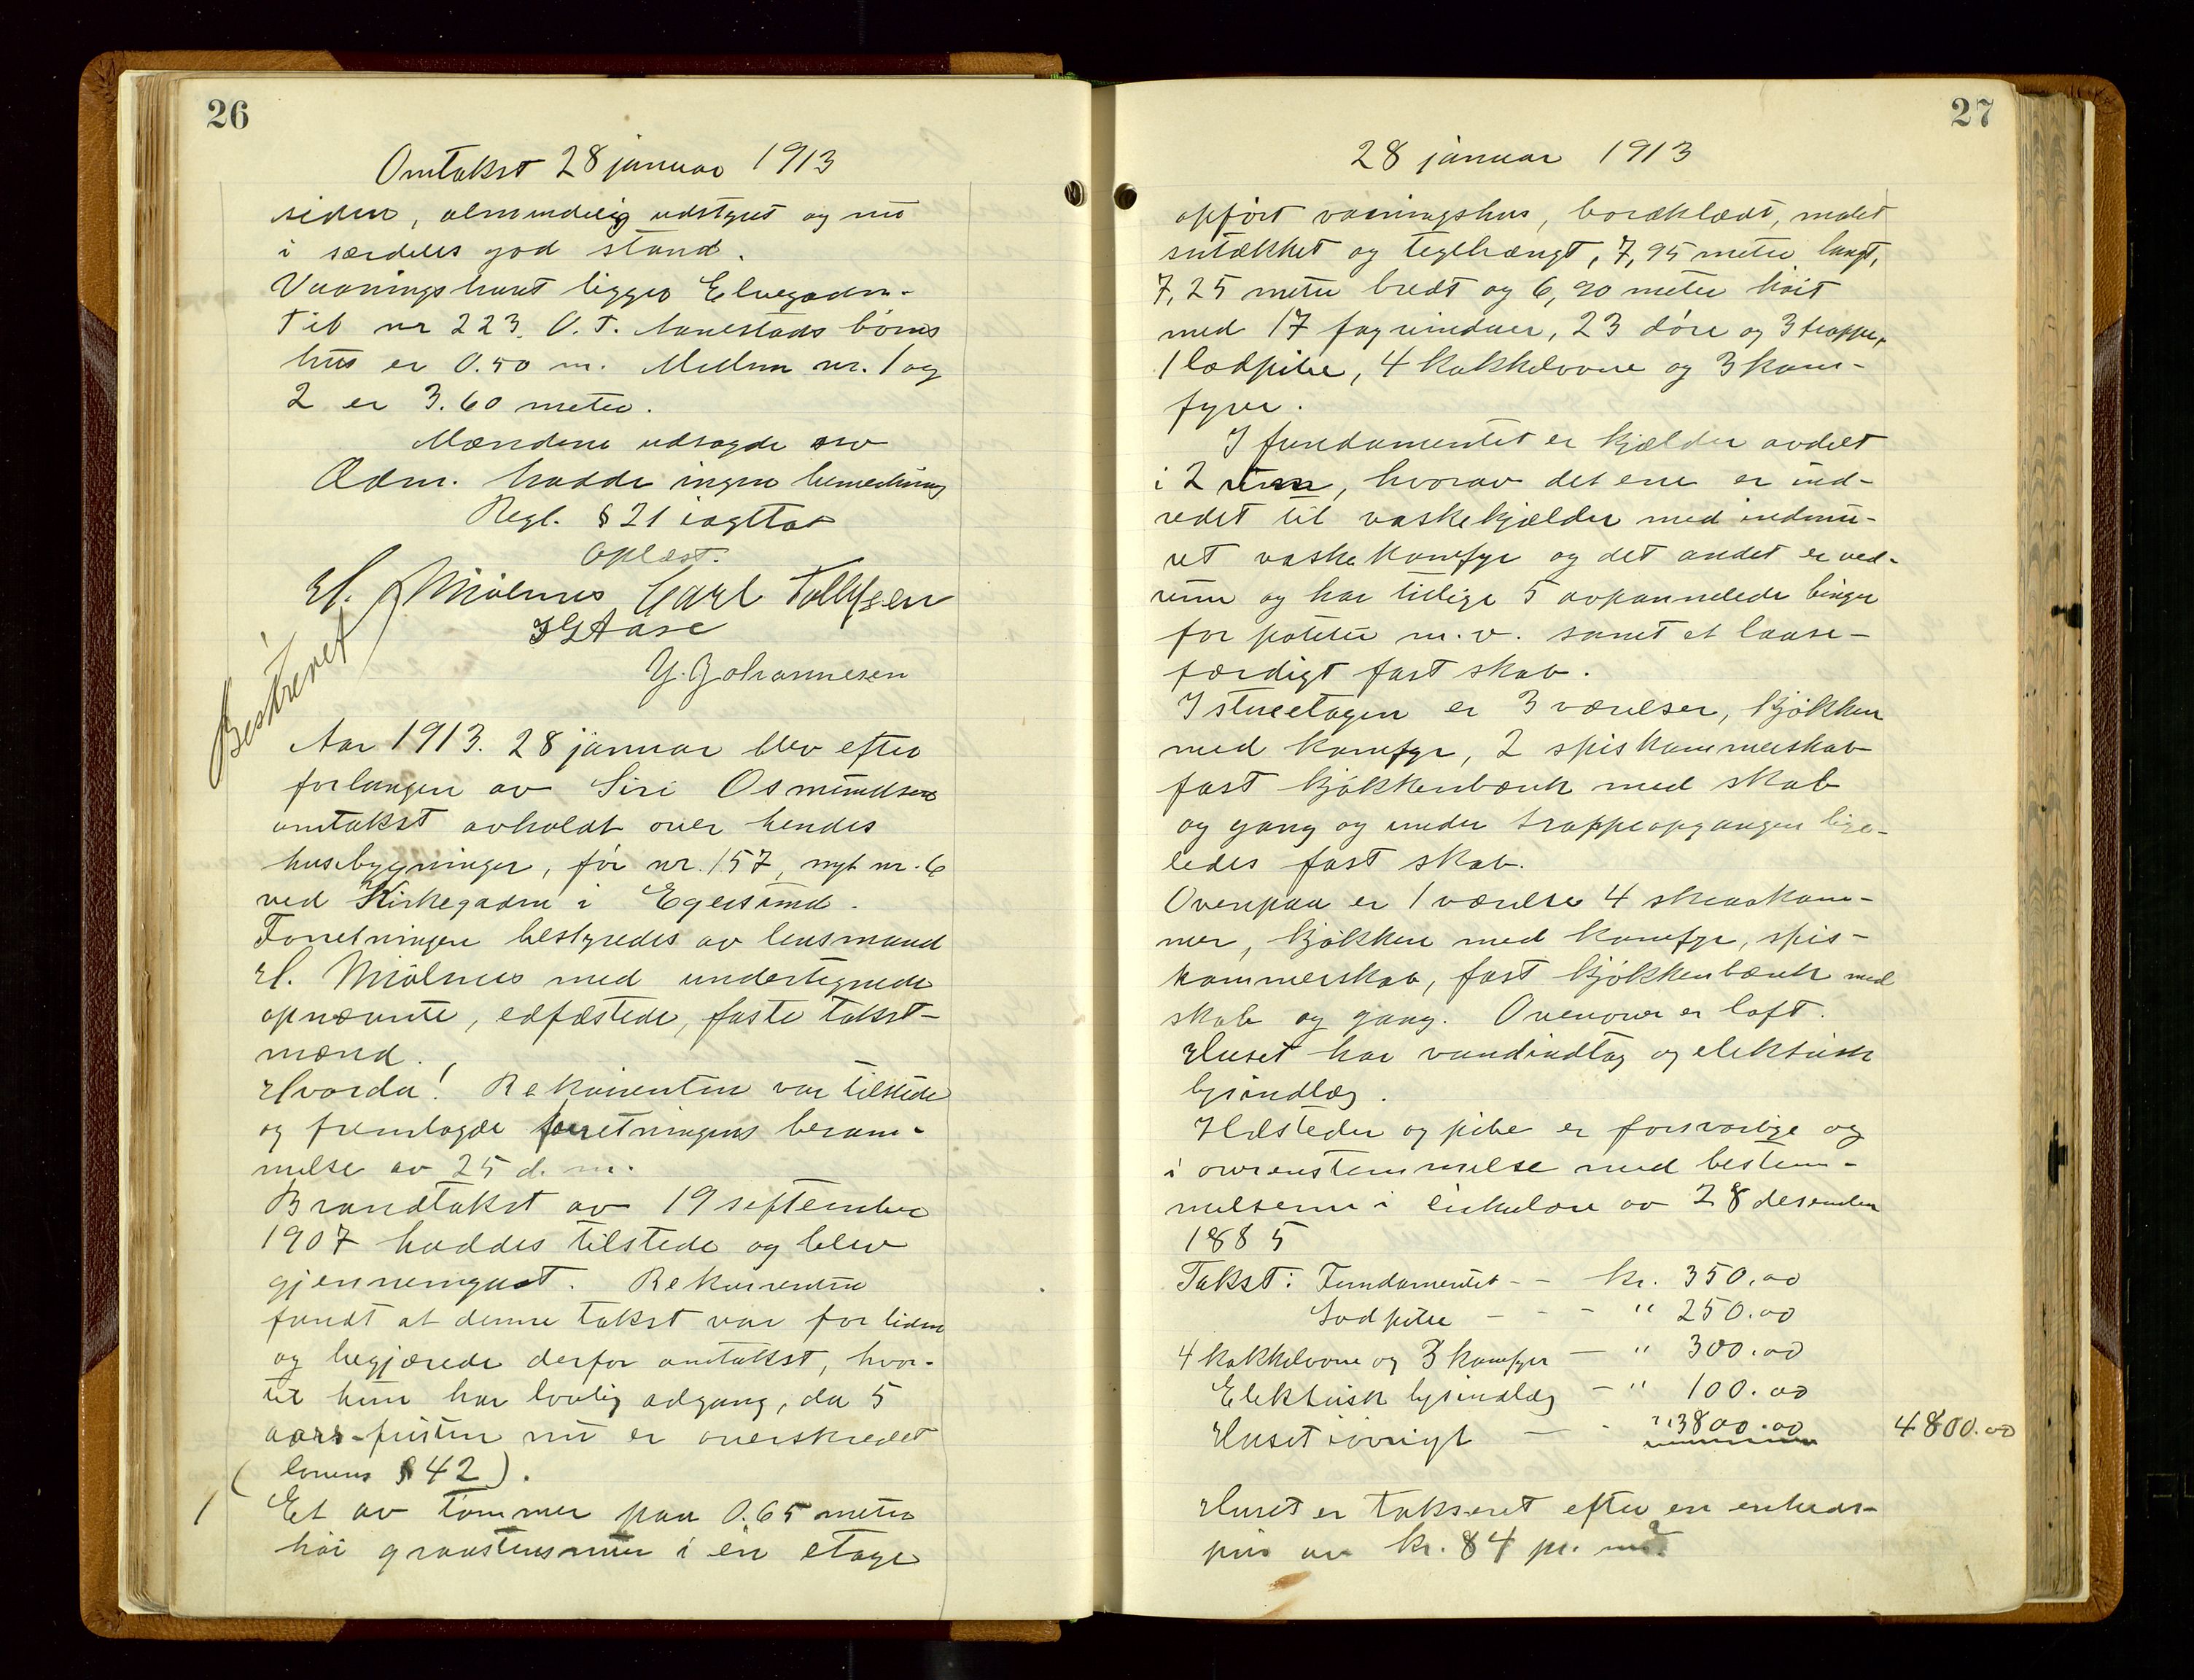 26
Omtakst 28 januar 1913
siden, almindelig udstyret og nu
i særdeles god stand.
Vaaningshuset ligger Elvegaden.
Til nr 223 O. T. Aanestads børns
hus er 0.50 m. Mellem nr. 1 og
2 er 3.60 meter.
Mændene udsagde sw
Adm. hadde ingen bemerkning
Regl. § 21 iagttat
Oplæst.
H. Mjølnes Carl Tollefsen
I G Aase
Y. Johannesen
Beskrevet
Aar 1913. 28 januar blev efter
forlangen av Siri Osmundsen
omtakst avholdt over hendes
husebygninger, før nr. 157, nyt nr. 6
ved Kirkegaden i Egersund.
Forretningen bestyredes av lensmand
H. Mjølnes med undertegnede
opnævnte, edfæstede, faste takst-
mænd.
Hvorda! Rekvirenten var tilstede
og fremlagde forretningens beram-
melse av 25 d. m.
Brandtakst av 19 september
1907 haddes tilstede og blev
gjennemgaat. Rekvirenten
fandt at denne takst var for liden
og begjærede derfor omtakst, hvor-
til hun har lovlig adgang, da 5
aars-fristen nu er overskredet
(lovens § 42).
1 Et av tømmer paa 0.65 meter
høi graastensmur i én etage
27
28 januar 1913
opført vaaningshus, bordklædt, malet
sutækket og teglhængt, 7,95 meter langt,
7,25 meter bredt og 6,90 meter høit
med 17 fag vinduer, 23 døre og 3 trapper,
1 lodpibe, 4 kakkelovne og 3 kom-
fyrer.
I fundamentet er kjælder avdelt
i 2 rum, hvorav det ene er ind-
redet til vaskekjælder med indmu-
ret vaskekomfyr og det andet er ved-
rum og har tillige 5 avpannelede binger
for poteter m. v. samt et laase-
færdigt fast skab.
I stueetagen er 3 værelser, kjøkken
med komfyr, 2 spiskammerskab
fast kjøkkenbænk med skab
og gang og under trappeopgangen lige-
ledes fast skab.
Ovenpaa er 1 værelse 4 skraakam-
mer, kjøkken med komfyr, spis-
kammerskab, fast kjøkkenbænk med
skab og gang. Ovenover er loft.
Huset har vandindtag og elektrisk
lysindlæg.
Ildsteder og pibe er forsvarlige og
i overenstemmelse med bestem-
melserne i cirkulære av 28 desember
1885
Takst: Fundamentet - - kr. 350.00
Lodpibe - - - " 250.00
4 kakkelovne og 3 komfyr - " 300.00
Elektrisk lysindlæg - " 100.00
Huset iøvrigt - - " 3800.00 4800.00
Huset er takseret efter en enheds-
pris av kr. 84 pr. m²